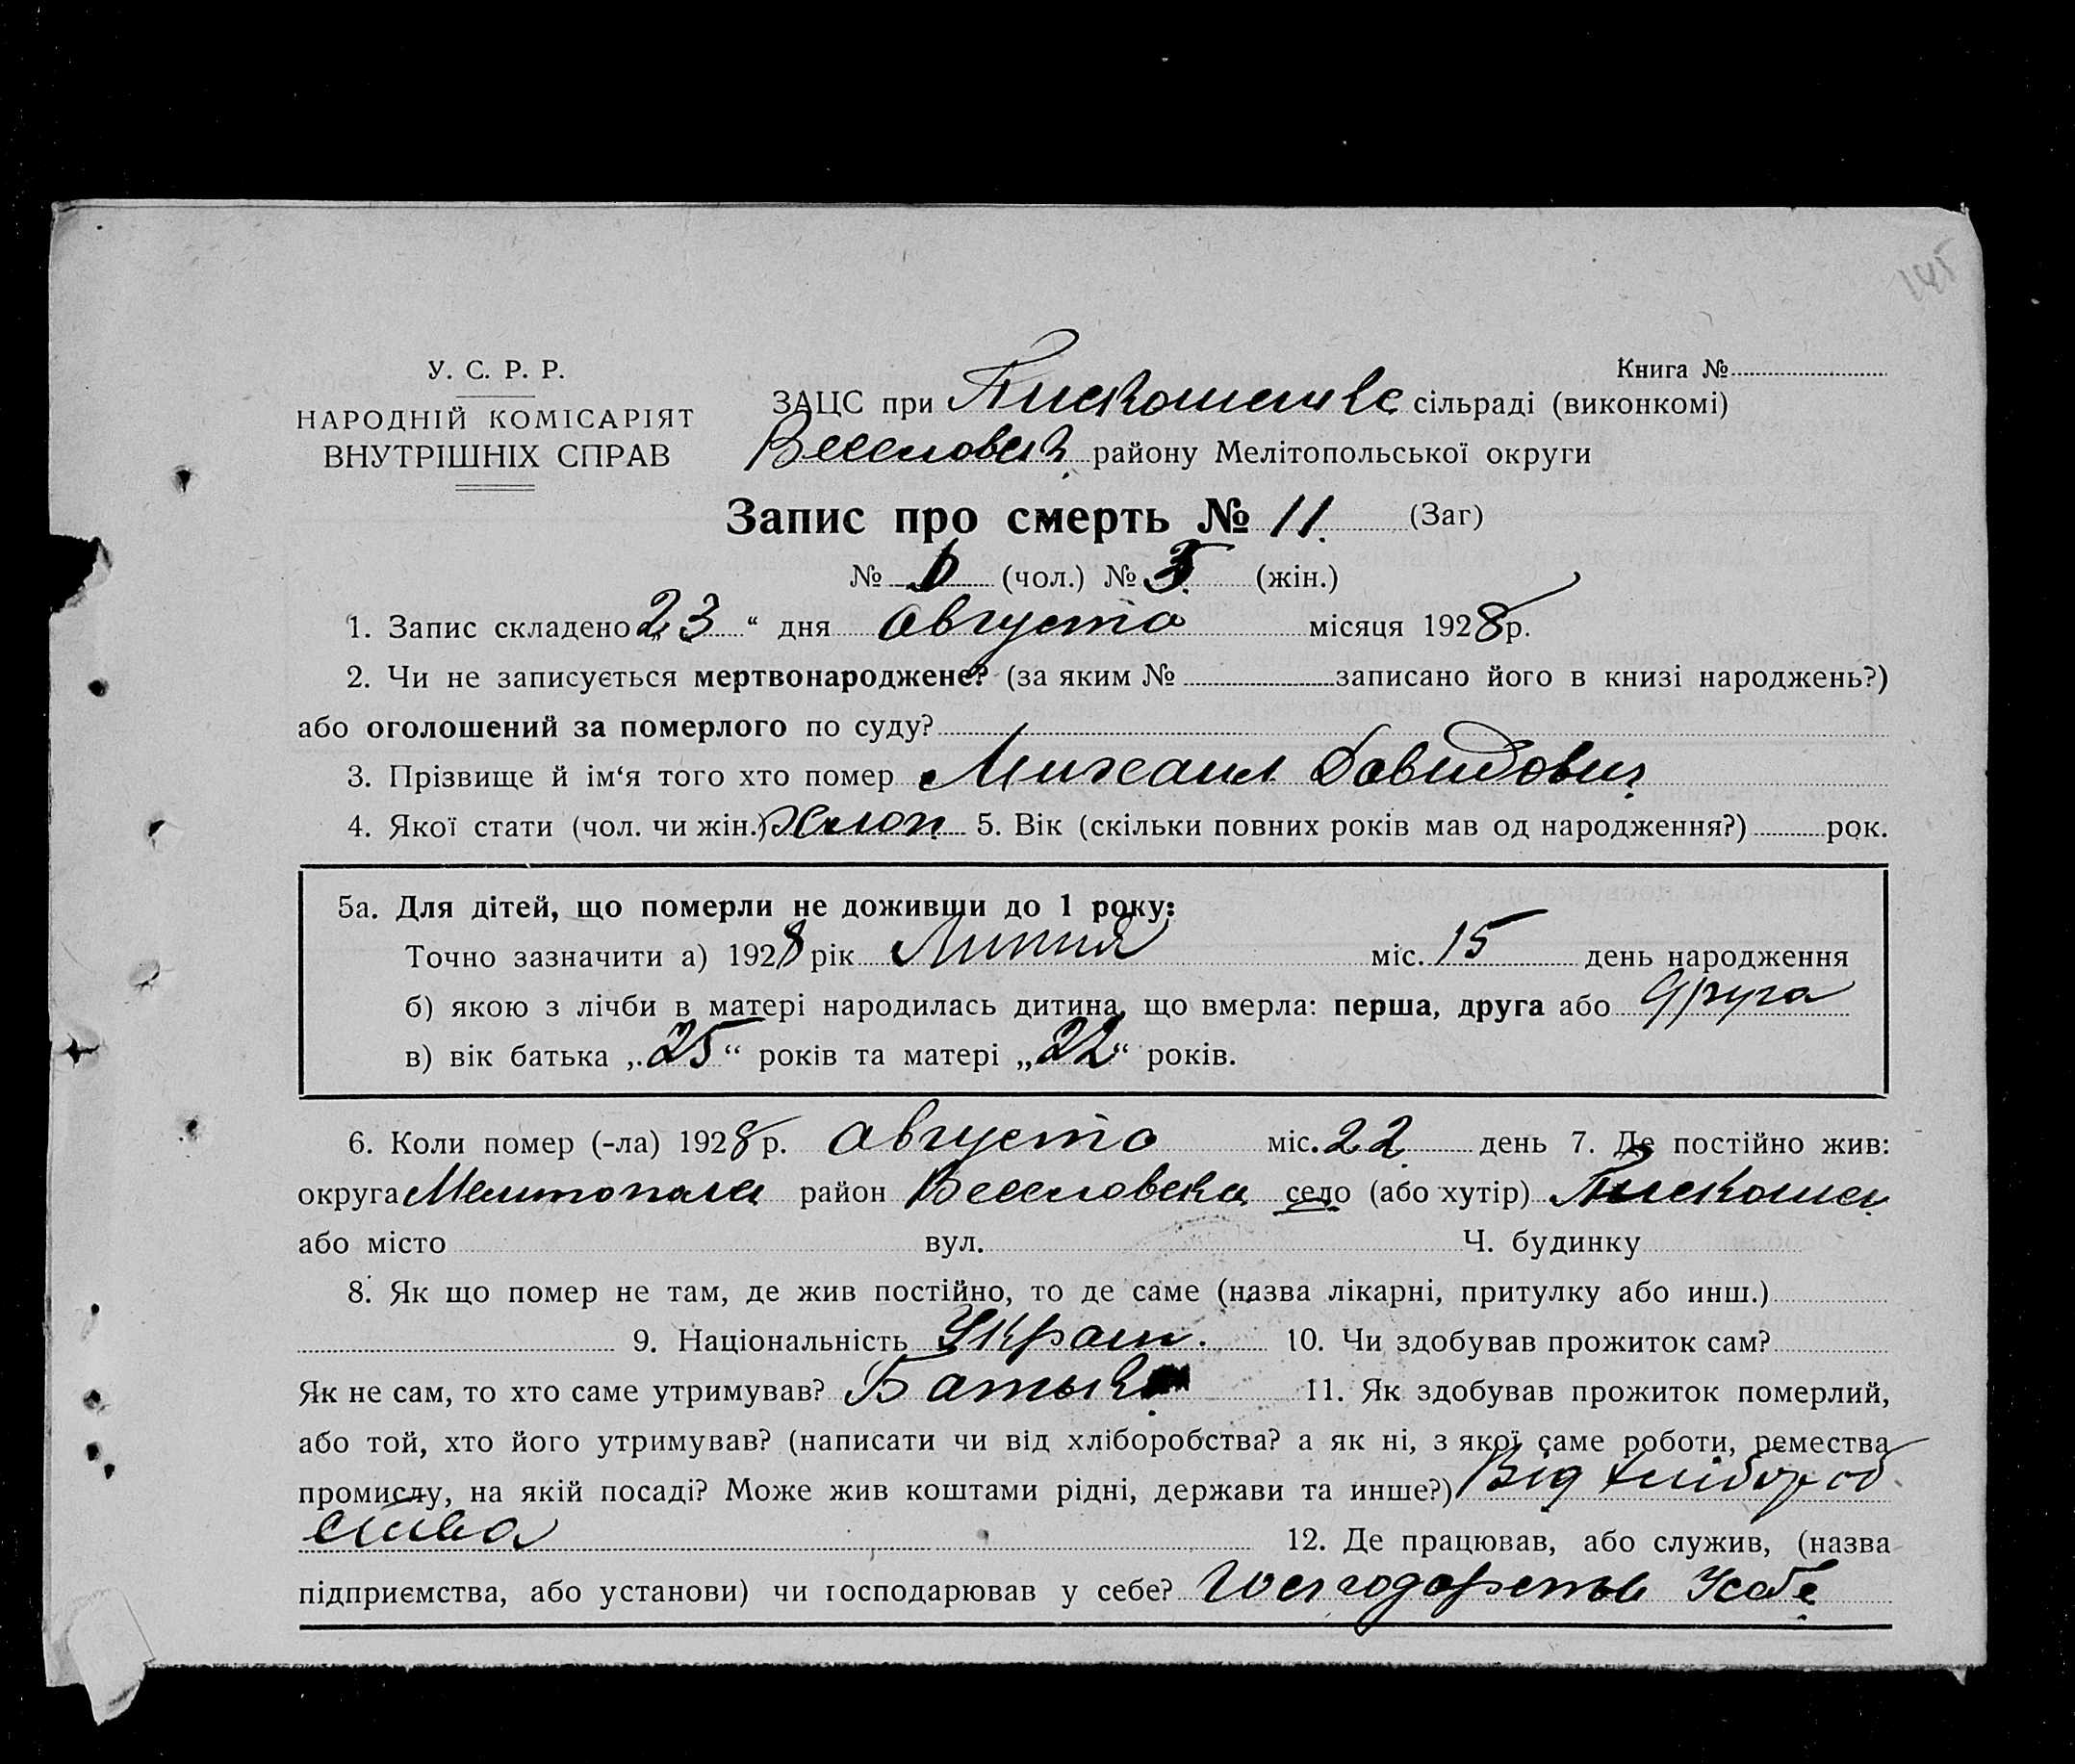 145
У. С. Р. Р.
НАРОДНІЙ КОМІСАРІЯТ
ВНУТРІШНІХ СПРАВ
Книга №
ЗАЦС при сільраді (виконкомі)
району Мелітопольської округи
Запис про смерть № 11. (Заг)
№ (чол.) № (жін.)
1. Запис складено 23 “ дня августа місяця 1928 р.
2. Чи не записується мертвонароджене? (за яким № записано його в книзі народжень?)
або оголошений за померлого по суду?
3. Прізвище й ім‘я того хто помер Михаил Давидович
4. Якої стати (чол. чи жін.) хлоп 5. Вік (скільки повних років мав од народження?) рок.
5а. Для дітей, що померли не доживши до 1 року:
Точно зазначити а) 1928 рік Липня міс. 15 день народження
б) якою з лічби в матері народилась дитина, що вмерла: перша, друга або друга
в) вік батька „25“ років та матері „22“ років.
6. Коли помер (-ла) 1928 р. августа міс. 22 день 7. Де постійно жив:
округа район село (або хутір)
або місто вул. Ч. будинку
8. Як що помер не там, де жив постійно, то де саме (назва лікарні, притулку або инш.)
9. Національність Украин. 10. Чи здобував прожиток сам?
Як не сам, то хто саме утримував? 11. Як здобував прожиток померлий,
або той, хто його утримував? (написати чи від хліборобства? а як ні, з якої саме роботи, ремества
промислу, на якій посаді? Може жив коштами рідні, держави та инше?) Від хлібороб
ства 12. Де працював, або служив, (назва
підприємства, або установи) чи господарював у себе?